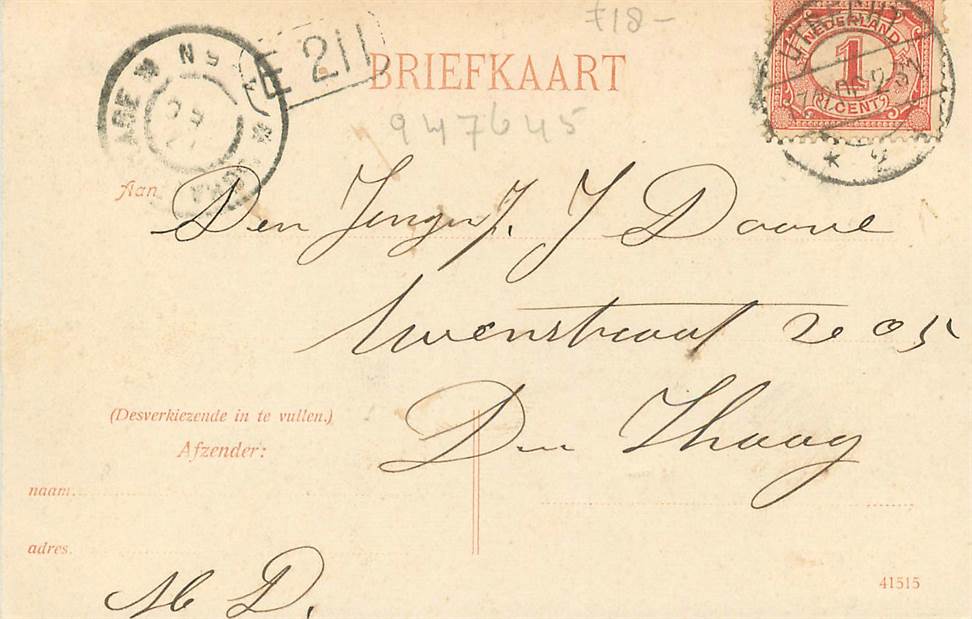 £18-
E 211
BRIEFKAART
947645
NEDERLAND
1
CENT
UTRECHT
Aan
Den J. J Doove
straat 2e 05
Den Haag
(Desverkiezende in te vullen.)
Afzender:
naam.
adres.
D.
41515